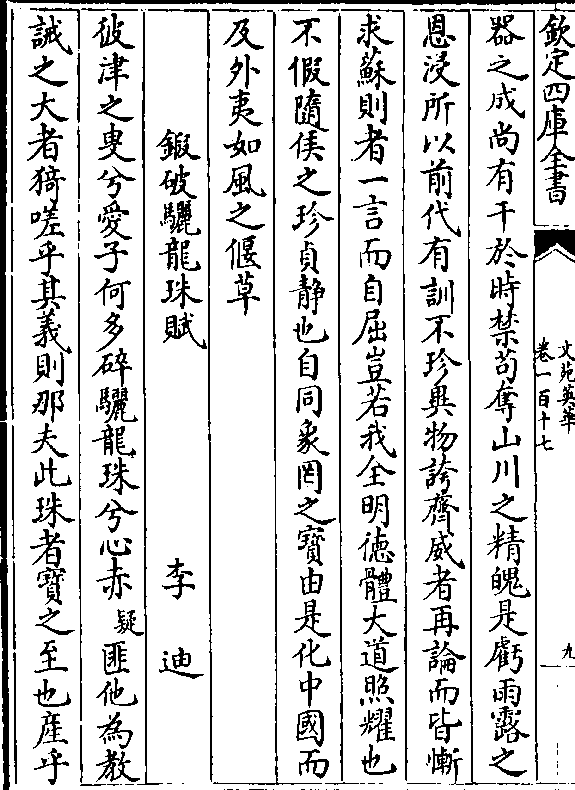 欽定四庫全書
文苑英華
卷一百十七
九
器之成尚有干於時禁苟奪山川之精魄是虧雨露之
恩浸所以前代有訓不珍異物誇齊威者再論而皆慚
求蘇則者一言而自屈豈若我全明徳體大道照耀也
不假隨侯之珍貞静也自同象罔之寶由是化中國而
及外夷如風之偃草
鍛破驪龍珠賦　李迪
彼津之叟兮愛子何多碎驪龍珠兮心赤疑匪他為教
誡之大者猗嗟乎其義則那夫此珠者寶之至也產乎